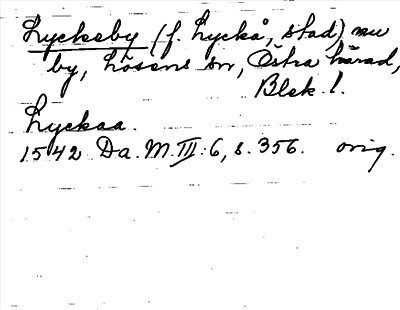 Lyckeby (f. Lyckå, stad) nu
by, Lösens sn, Östra härad,
Blek. l.
Lyckaa.
1542 Da. M. III: 6, s. 356. orig.